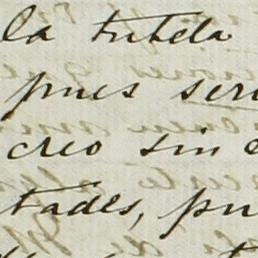 la tutela
pues seri
creo sin e
tades, pu